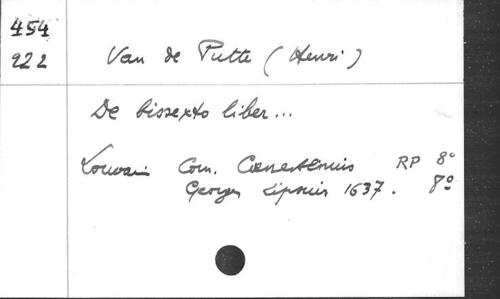 454
922
Van de Putte (Henri)
De bissexto liber...
Louvain Corn. Coenestenius RP 8°
Georges Lipsius 1637. 8°